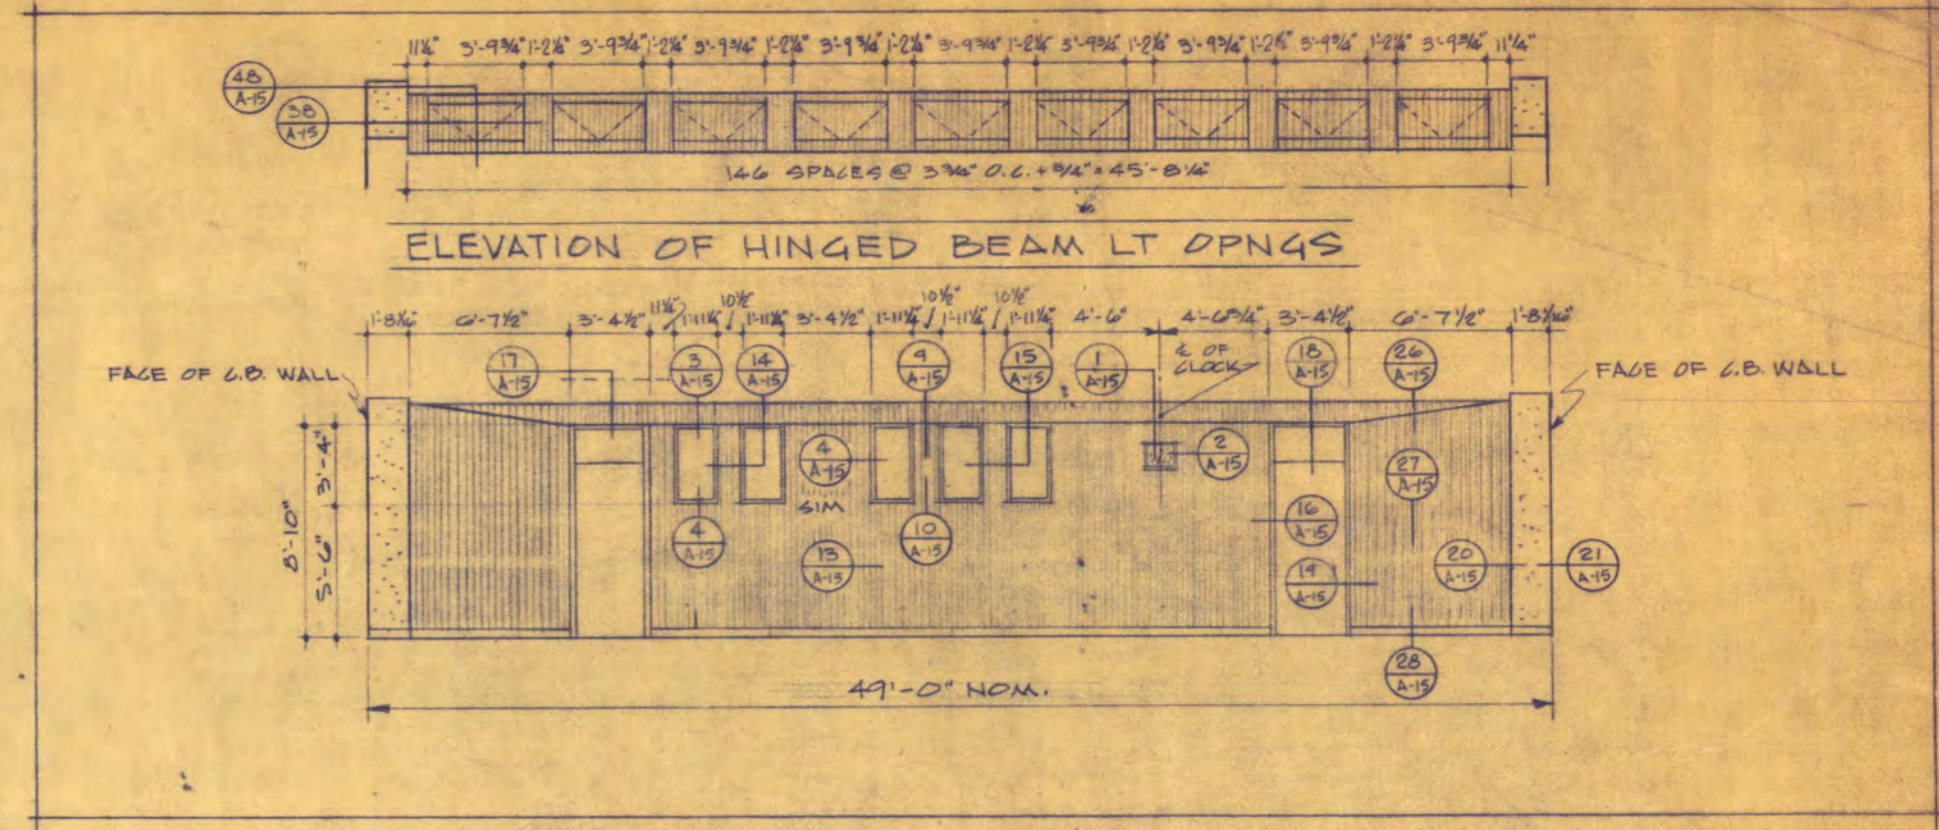 11¼" 3'-9¾" 1'-2¼" 3'-9¾" 1'-2¼" 3'-9¾" 1'-2¼" 3'-9¾" 1'-2¼" 3'-9¾" 1'-2¼" 3'-9¾" 1'-2¼" 3'-9¾" 1'-2¼" 3'-9¾" 1'-2¼" 3'-9¾" 11¼"
48
A-15
38
A-15
146 SPACES @ 3¾" O.C. + ¾" = 45'-8¼"
ELEVATION OF HINGED BEAM LT OPNGS
11¼" 10½" 10½" 10½"
6'-7½" 3'-4½" 1'-11¼" 1'-11¼" 3'-4½" 1'-11¼" 1'-11¼" 1'-11¼" 4'-6" 4'-6¾" 3'-4½" 6'-7½" 1'-8⅛"
FACE OF C.B. WALL
17
A-15
3
A-15
14
A-15
9
A-15
15
A-15
1
A-15
℄ OF
CLOCK
18
A-15
26
A-15
FACE OF C.B. WALL
8'-10"
3'-4"
5'-6"
4
A-15
SIM
2
A-15
27
A-15
4
A-15
10
A-15
16
A-15
13
A-15
19
A-15
20
A-15
21
A-15
28
A-15
49'-0" NOM.